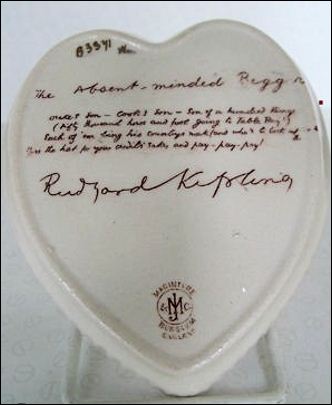 83371
The Absent-minded Beggar
Cook's Son - Son of a hundred Kings
(Fifty thousand horse and foot going to Table Bay!)
Each of 'em doing his country's work (and who's to look
Pass the hat for your credit's sake, and pay - pay - pay!
Rudyard Kipling
MACINTYRE
& JM Co
BURSLEM
ENGLAND